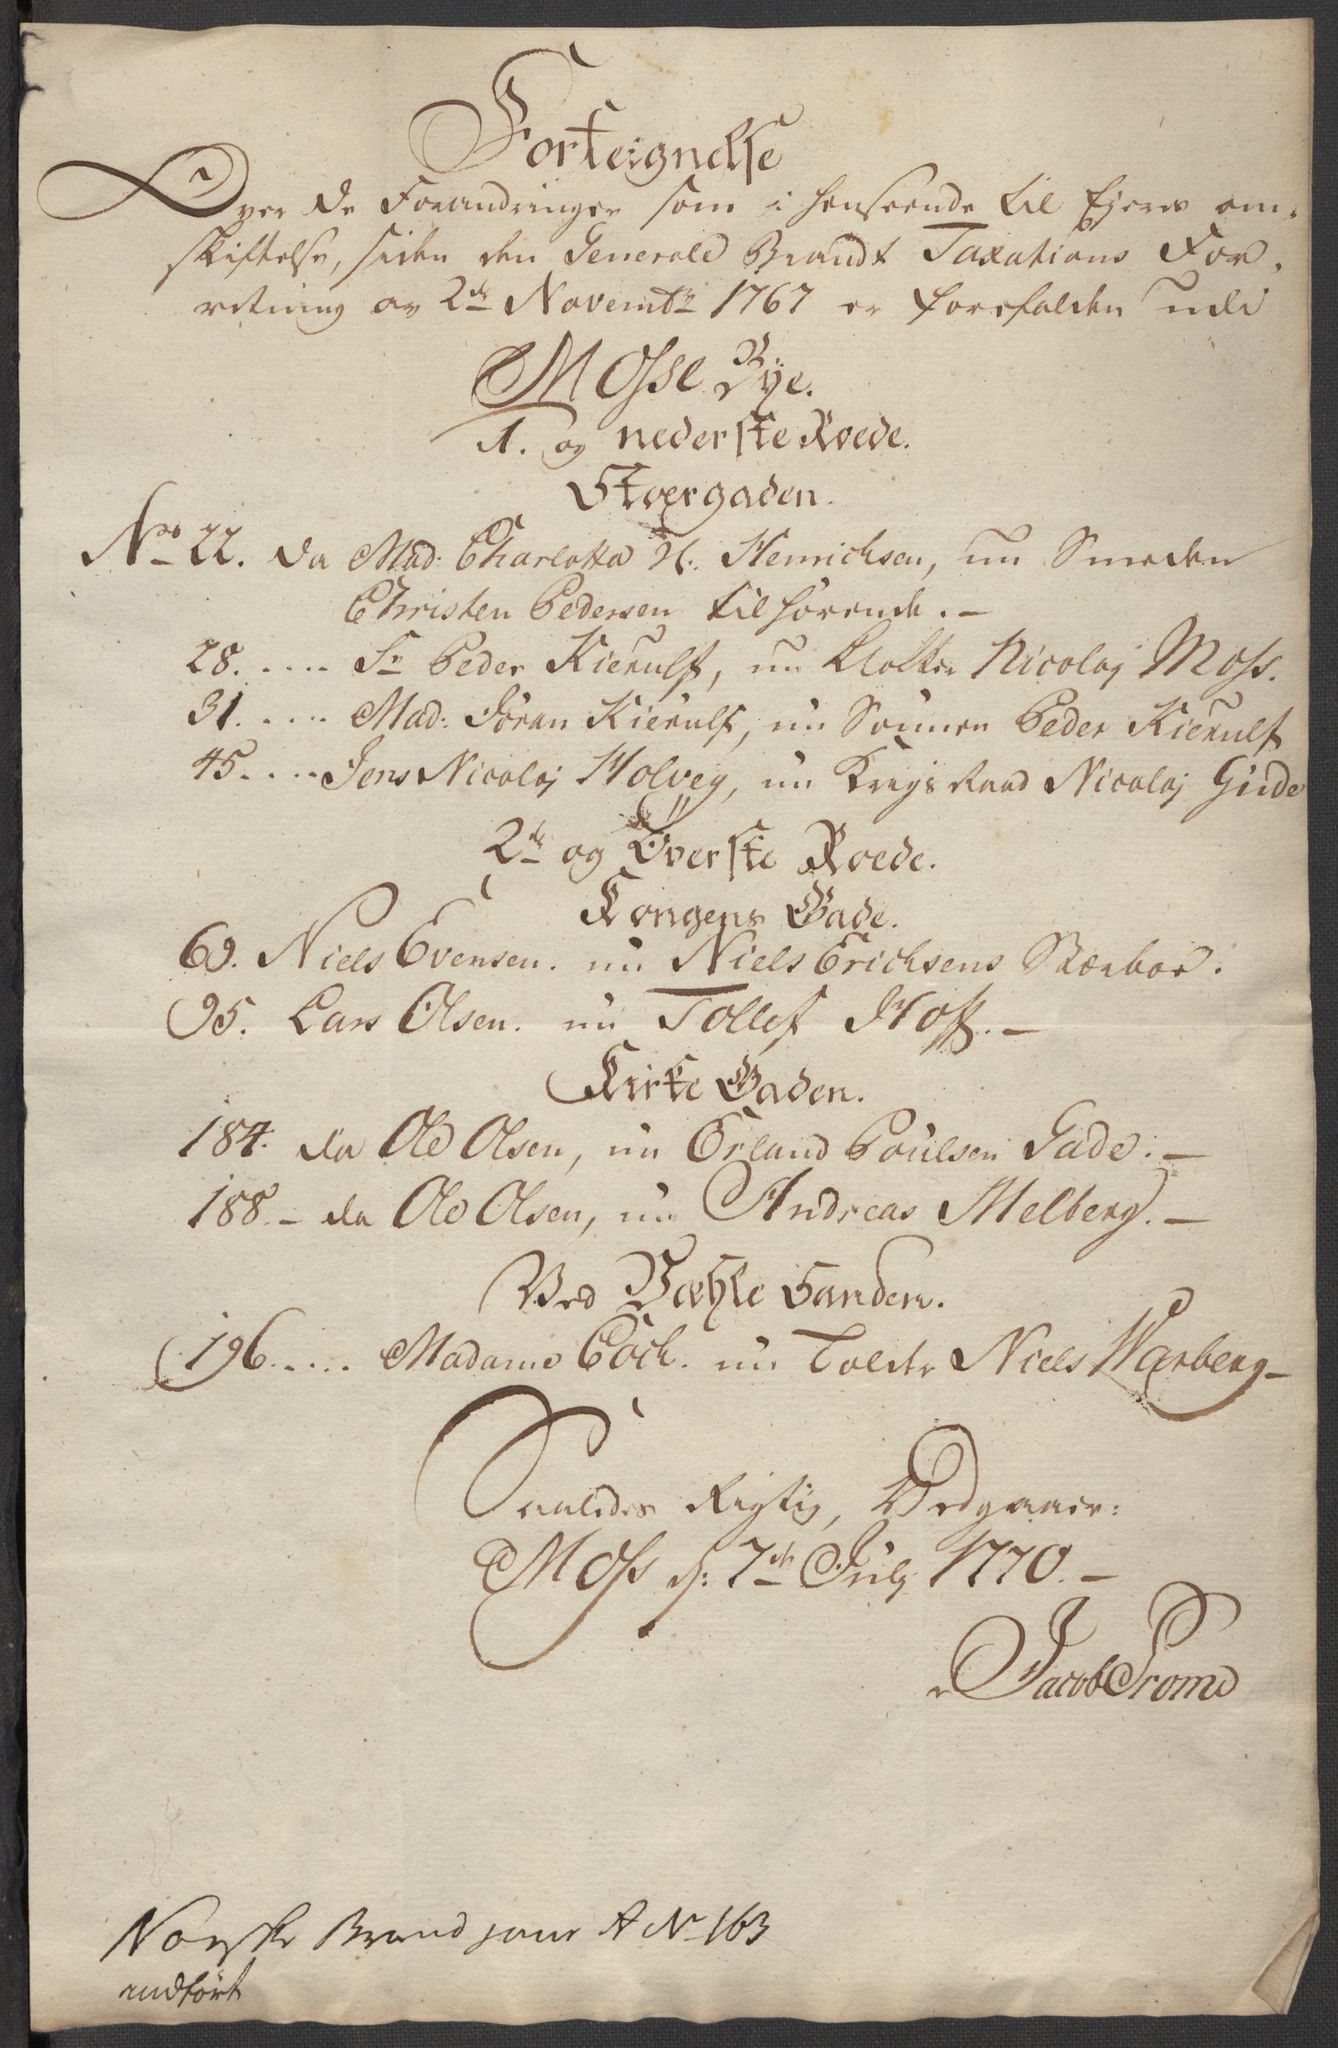 Forteignelse
Over de Forandringer som i henseende til Ejeres om-
skiftelse, siden den Generale Brandt Taxations For-
retning av 2den Novembr 1767 er forefalden udi
Mosse Bye.
1. og nederste Roede.
Stoergaden.
No 22. da Mad: Charlotta H. Henrichsen, nu Smeden
Christen Pedersen tilhørende. —
28. .... Sr Peder Kierulf, nu Klokker Nicolaj Moss.
31. .... Mad: Jøran Kierulf, nu Sønnen Peder Kierulf
45. .... Jens Nicolaj Holveg, nu Krigs Raad Nicolaj Gude
2den og Øverste Roede.
Kongens Gade.
60. Niels Evensen. nu Niels Erichsens Stærboe.
95. Lars Olsen. nu Tollef Hoff. —
Kirke Gaden.
184. da Ole Olsen, nu Erland Poulsen Gade. —
188. – da Ole Olsen, nu Andreas Melberg. —
Ved Værle Sanden.
196. .... Madame Coch. nu Tolder Niels Warberg –
Saaledes Rigtig, Vedgaaer:
Moss d: 7de July 1770. —
Jacob Trome
Norske Brand jour A No 163
indført